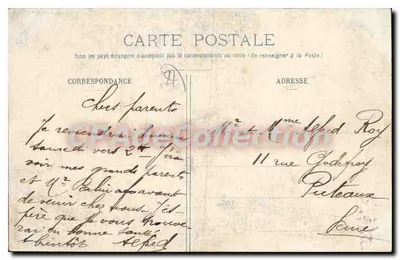 CARTE POSTALE
Tous les pays étrangers n'acceptent pas la correspondance au recto (Se renseigner à la Poste)
CORRESPONDANCE
ADRESSE
21
Chers parents
Je reviendrai
samedi vers 2h J'irai
voir mes grands parents
et Mr auparavant
de venir chez nous. J'es-
père que je vous trouve-
rai en bonne santé
à bientôt Alfred
Mr et Mme Alfred Roy
11 rue Godefroy
Puteaux
Seine